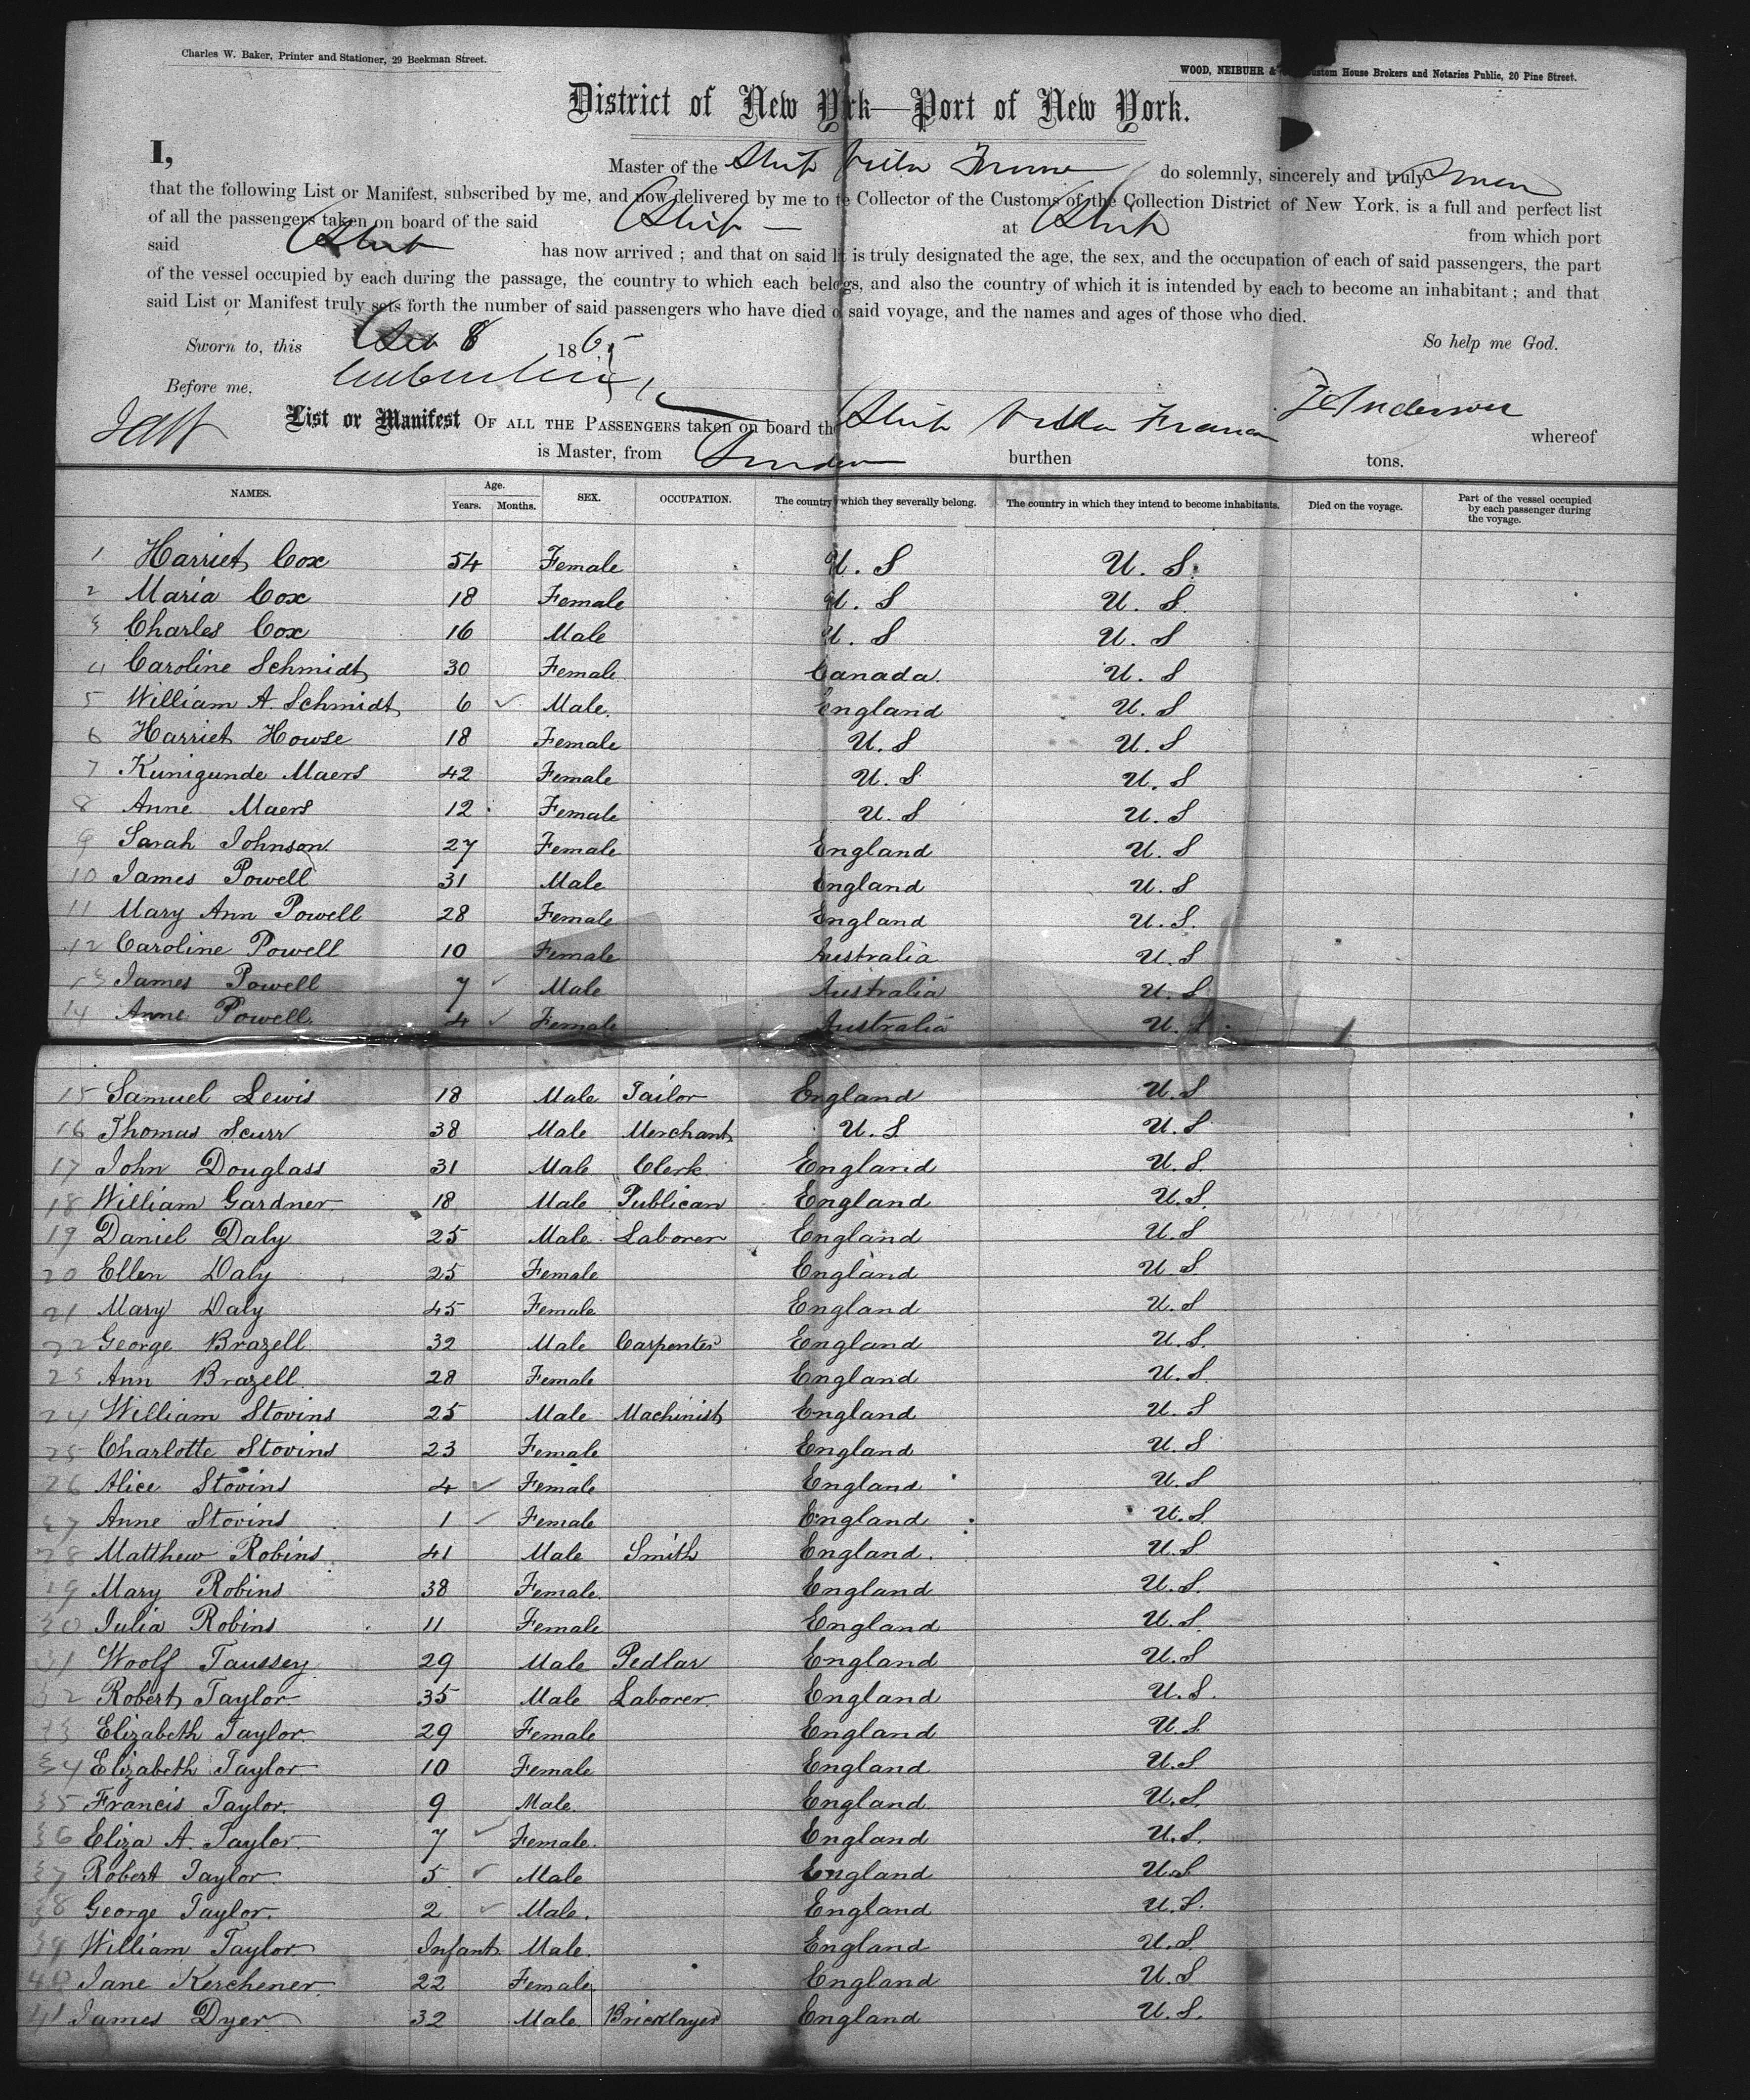 Charles W. Baker, Printer and Stationer, 29 Beekman Street.
WOOD, NEIBUHR & Custom House Brokers and Notaries Public, 20 Pine Street.
District of New York—Port of New York.
I, Master of the Ship Villa Franca do solemnly, sincerely and truly swear
that the following List or Manifest, subscribed by me, and now delivered by me to te Collector of the Customs of the Collection District of New York, is a full and perfect list
of all the passengers taken on board of the said Ship at from which port
said Ship has now arrived; and that on said lit is truly designated the age, the sex, and the occupation of each of said passengers, the part
of the vessel occupied by each during the passage, the country to which each belogs, and also the country of which it is intended by each to become an inhabitant; and that
said List or Manifest truly sets forth the number of said passengers who have died o said voyage, and the names and ages of those who died.
Sworn to, this 8 1865 So help me God.
Before me.
List or Manifest OF ALL THE PASSENGERS taken on board th Ship Villa Franca Anderson whereof
is Master, from London burthen tons.
NAMES. Age. Years. Months. SEX. OCCUPATION. The country which they severally belong. The country in which they intend to become inhabitants. Died on the voyage. Part of the vessel occupied by each passenger during the voyage.
1 Harriet Cox 54 Female U. S U. S.
2 Maria Cox 18 Female U. S U. S.
3 Charles Cox 16 Male U. S U. S
4 Caroline Schmidt 30 Female Canada U. S
5 William A. Schmidt 6 Male. England U. S
6 Harriet Howse 18 Female U. S U. S
7 Kunigunde Maers 42 Female U. S U. S
8 Anne Maers 12 Female U. S U. S
9 Sarah Johnson 27 Female England U. S
10 James Powell 31 Male England U. S
11 Mary Ann Powell 28 Female England U. S.
12 Caroline Powell 10 Female Australia U. S
13 James Powell 7 Male Australia U. S
14 Anne Powell 4 Female Australia U. S
15 Samuel Lewis 18 Male Tailor England U. S
16 Thomas Scurr 38 Male Merchant U. S U. S
17 John Douglass 31 Male Clerk England U. S.
18 William Gardner 18 Male Publican England U. S.
19 Daniel Daly 25 Male Laborer England U. S
20 Ellen Daly 25 Female England U. S.
21 Mary Daly 45 Female England U. S
22 George Brazell 32 Male Carpenter England U. S.
23 Ann Brazell 28 Female England U. S.
24 William Stovins 25 Male Machinist England U. S
25 Charlotte Stovins 23 Female England U. S
26 Alice Stovins 4 Female England U. S
27 Anne Stovins 1 Female England U. S.
28 Matthew Robins 41 Male Smith England. U. S
29 Mary Robins 38 Female. England U. S.
30 Julia Robins 11 Female England U. S.
31 Woolf Taussey 29 Male Pedlar England U. S
32 Robert Taylor 35 Male Laborer England U. S.
33 Elizabeth Taylor 29 Female England U. S.
34 Elizabeth Taylor 10 Female England U. S
35 Francis Taylor. 9 Male. England U. S.
36 Eliza A. Taylor 7 Female. England U. S.
37 Robert Taylor 5 Male England U. S
38 George Taylor. 2 Male. England U. S.
39 William Taylor Infant Male. England U. S.
40 Jane Kerchener 22 Female England U. S
41 James Dyer 32 Male Bricklayer England U. S.